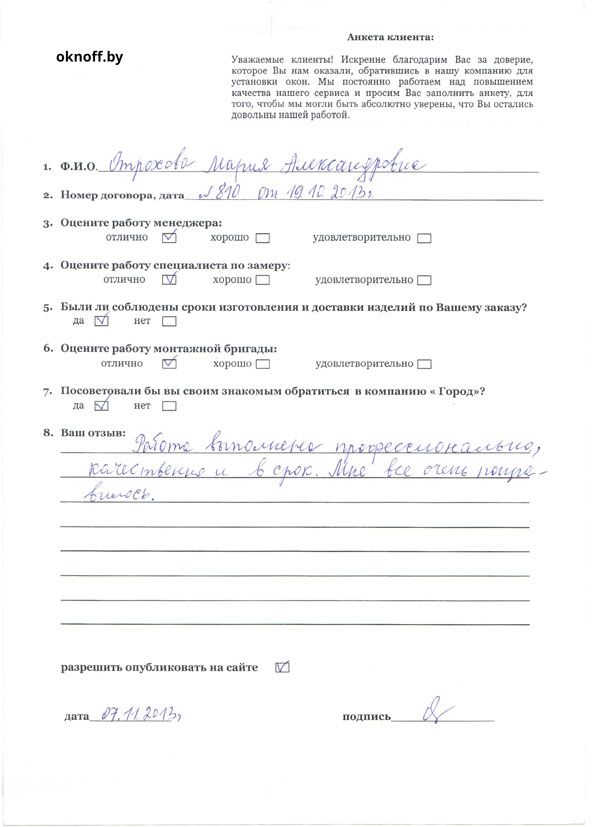 oknoff.by
Анкета клиента:
Уважаемые клиенты! Искренне благодарим Вас за доверие,
которое Вы нам оказали, обратившись в нашу компанию для
установки окон. Мы постоянно работаем над повышением
качества нашего сервиса и просим Вас заполнить анкету, для
того, чтобы мы могли быть абсолютно уверены, что Вы остались
довольны нашей работой.
1. Ф.И.О. Отрохова Мария Александровна
2. Номер договора, дата №810 от 19.10.2013г.
3. Оцените работу менеджера:
отлично хорошо удовлетворительно
4. Оцените работу специалиста по замеру:
отлично хорошо удовлетворительно
5. Были ли соблюдены сроки изготовления и доставки изделий по Вашему заказу?
да нет
6. Оцените работу монтажной бригады:
отлично хорошо удовлетворительно
7. Посоветовали бы вы своим знакомым обратиться в компанию « Город»?
да нет
8. Ваш отзыв: Работа выполнена профессионально,
качественно и в срок. Мне все очень понра-
вилось.
разрешить опубликовать на сайте
дата 07.11.2013г. подпись